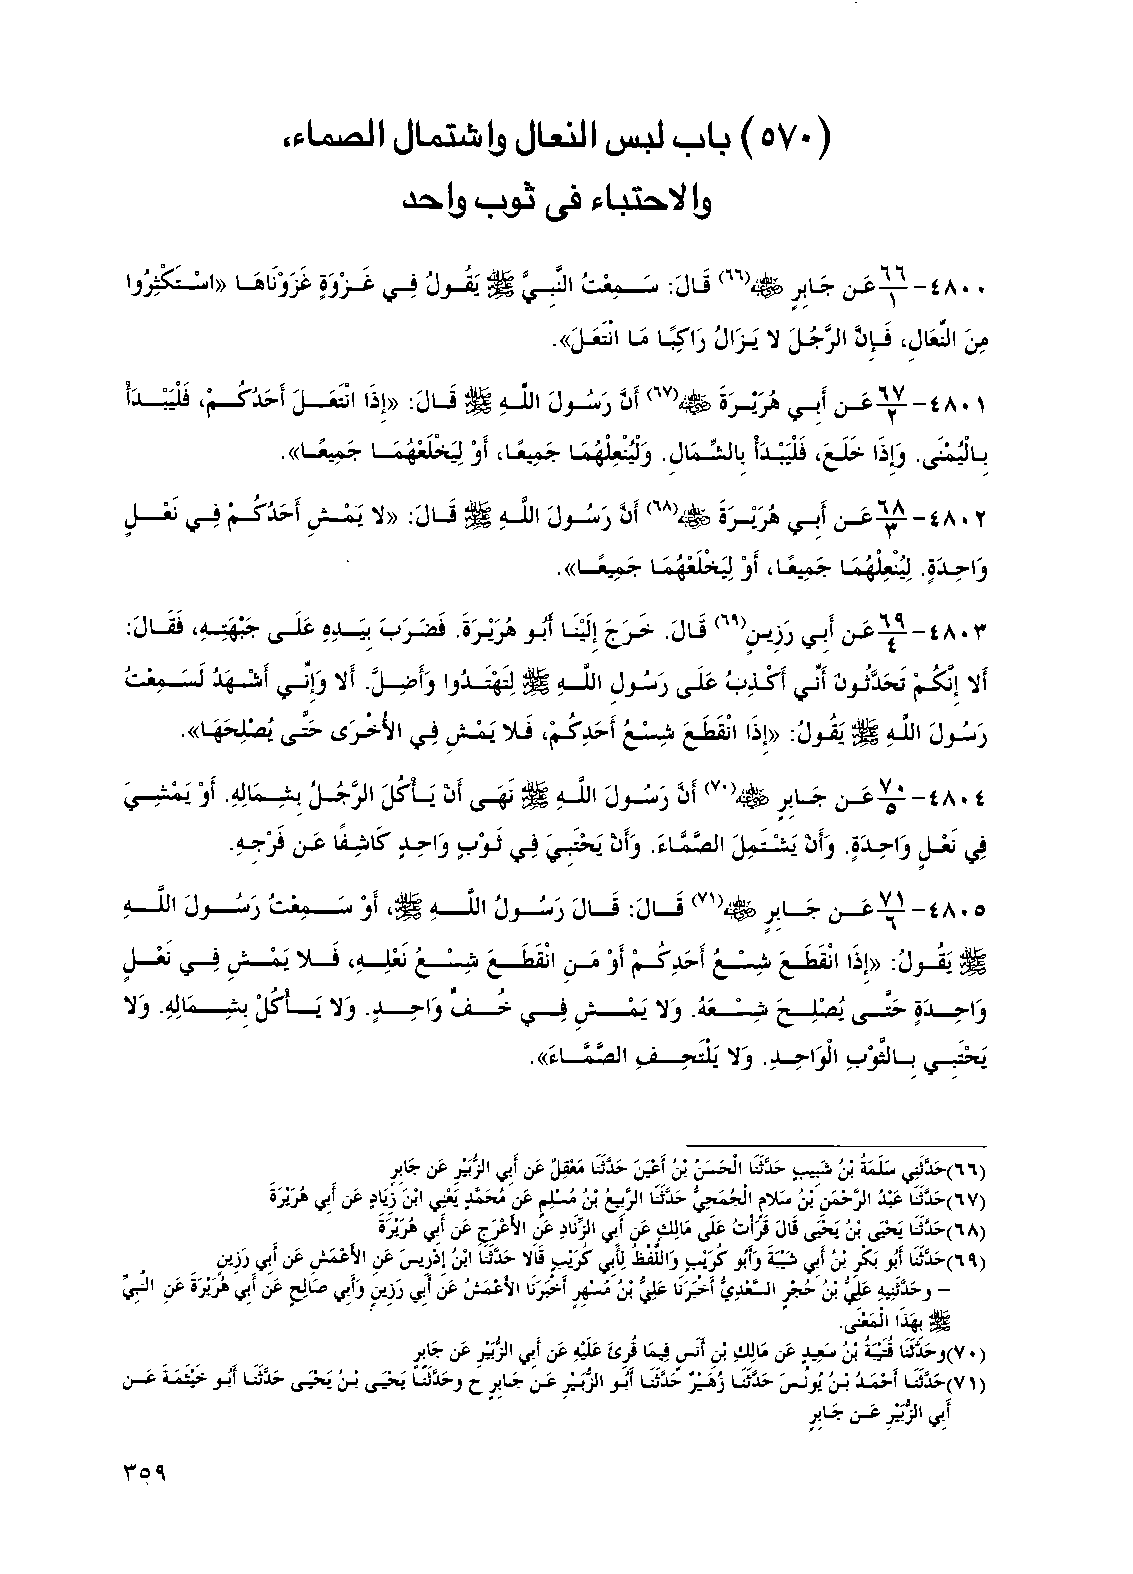 (٥٧٠) باب لبس النعال واشتمال الصماء،
والاحتباء فى ثوب واحد
٤٨٠٠- ٦٦/١ عَن جَابِرٍ ﵁(٦٦) قَالَ: سَمِعْتُ النَّبِيَّ ﷺ يَقُولُ فِي غَزْوَةٍ غَزَوْنَاهَا «اسْتَكْثِرُوا
مِنَ النِّعَالِ، فَإِنَّ الرَّجُلَ لا يَزَالُ رَاكِبًا مَا انْتَعَلَ».
٤٨٠١- ٦٧/٢ عَن أَبِي هُرَيْرَةَ ﵁(٦٧) أَنَّ رَسُولَ اللَّهِ ﷺ قَالَ: «إِذَا انْتَعَلَ أَحَدُكُمْ، فَلْيَبْدَأْ
بِالْيُمْنَى. وَإِذَا خَلَعَ، فَلْيَبْدَأْ بِالشِّمَالِ. وَلْيُنْعِلْهُمَا جَمِيعًا، أَوْ لِيَخْلَعْهُمَا جَمِيعًا».
٤٨٠٢- ٦٨/٣ عَن أَبِي هُرَيْرَةَ ﵁(٦٨) أَنَّ رَسُولَ اللَّهِ ﷺ قَالَ: «لا يَمْشِ أَحَدُكُمْ فِي نَعْلٍ
وَاحِدَةٍ. لِيُنْعِلْهُمَا جَمِيعًا، أَوْ لِيَخْلَعْهُمَا جَمِيعًا».
٤٨٠٣- ٦٩/٤ عَن أَبِي رَزِينٍ(٦٩) قَالَ. خَرَجَ إِلَيْنَا أَبُو هُرَيْرَةَ. فَضَرَبَ بِيَدِهِ عَلَى جَبْهَتِهِ، فَقَالَ:
أَلا إِنَّكُمْ تَحَدَّثُونَ أَنِّي أَكْذِبُ عَلَى رَسُولِ اللَّهِ ﷺ لِتَهْتَدُوا وَأَضِلَّ. أَلا وَإِنِّي أَشْهَدُ لَسَمِعْتُ
رَسُولَ اللَّهِ ﷺ يَقُولُ: «إِذَا انْقَطَعَ شِسْعُ أَحَدِكُمْ، فَلا يَمْشِ فِي الأُخْرَى حَتَّى يُصْلِحَهَا».
٤٨٠٤- ٧٠/٥ عَن جَابِرٍ ﵁(٧٠) أَنَّ رَسُولَ اللَّهِ ﷺ نَهَى أَنْ يَأْكُلَ الرَّجُلُ بِشِمَالِهِ. أَوْ يَمْشِيَ
فِي نَعْلٍ وَاحِدَةٍ. وَأَنْ يَشْتَمِلَ الصَّمَّاءَ. وَأَنْ يَحْتَبِيَ فِي ثَوْبٍ وَاحِدٍ كَاشِفًا عَن فَرْجِهِ.
٤٨٠٥- ٧١/٦ عَن جَابِرٍ ﵁(٧١) قَالَ: قَالَ رَسُولُ اللَّهِ ﷺ، أَوْ سَمِعْتُ رَسُولَ اللَّهِ
ﷺ يَقُولُ: «إِذَا انْقَطَعَ شِسْعُ أَحَدِكُمْ أَوْ مَنِ انْقَطَعَ شِسْعُ نَعْلِهِ، فَلا يَمْشِ فِي نَعْلٍ
وَاحِدَةٍ حَتَّى يُصْلِحَ شِسْعَهُ. وَلا يَمْشِ فِي خُفٍّ وَاحِدٍ. وَلا يَأْكُلْ بِشِمَالِهِ. وَلا
يَحْتَبِي بِالثَّوْبِ الْوَاحِدِ. وَلا يَلْتَحِفِ الصَّمَّاءَ».
(٦٦) حَدَّثَنِي سَلَمَةُ بْنُ شَبِيبٍ حَدَّثَنَا الْحَسَنُ بْنُ أَعْيَنَ حَدَّثَنَا مَعْقِلٌ عَن أَبِي الزُّبَيْرِ عَن جَابِرٍ
(٦٧) حَدَّثَنَا عَبْدُ الرَّحْمَنِ بْنُ سَلامٍ الْجُمَحِيُّ حَدَّثَنَا الرَّبِيعُ بْنُ مُسْلِمٍ عَن مُحَمَّدٍ يَعْنِي ابْنَ زِيَادٍ عَن أَبِي هُرَيْرَةَ
(٦٨) حَدَّثَنَا يَحْيَى بْنُ يَحْيَى قَالَ قَرَأْتُ عَلَى مَالِكٍ عَن أَبِي الزِّنَادِ عَنِ الأَعْرَجِ عَن أَبِي هُرَيْرَةَ
(٦٩) حَدَّثَنَا أَبُو بَكْرِ بْنُ أَبِي شَيْبَةَ وَأَبُو كُرَيْبٍ وَاللَّفْظُ لِأَبِي كُرَيْبٍ قَالا حَدَّثَنَا ابْنُ إِدْرِيسَ عَنِ الأَعْمَشِ عَن أَبِي رَزِينٍ
– وحَدَّثَنِيهِ عَلِيُّ بْنُ حُجْرٍ السَّعْدِيُّ أَخْبَرَنَا عَلِيُّ بْنُ مُسْهِرٍ أَخْبَرَنَا الأَعْمَشُ عَن أَبِي رَزِينٍ وَأَبِي صَالِحٍ عَن أَبِي هُرَيْرَةَ عَنِ النَّبِيِّ
ﷺ بِهَذَا الْمَعْنَى.
(٧٠) وحَدَّثَنَا قُتَيْبَةُ بْنُ سَعِيدٍ عَن مَالِكِ بْنِ أَنَسٍ فِيمَا قُرِئَ عَلَيْهِ عَن أَبِي الزُّبَيْرِ عَن جَابِرٍ
(٧١) حَدَّثَنَا أَحْمَدُ بْنُ يُونُسَ حَدَّثَنَا زُهَيْرٌ حَدَّثَنَا أَبُو الزُّبَيْرِ عَن جَابِرٍ ح وحَدَّثَنَا يَحْيَى بْنُ يَحْيَى حَدَّثَنَا أَبُو خَيْثَمَةَ عَن
أَبِي الزُّبَيْرِ عَن جَابِرٍ
٣٥٩